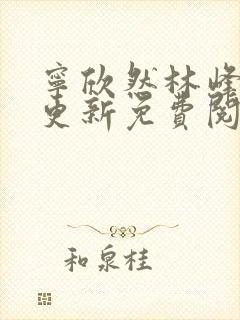 寧欣然林峰
更新免費閱
和泉桂